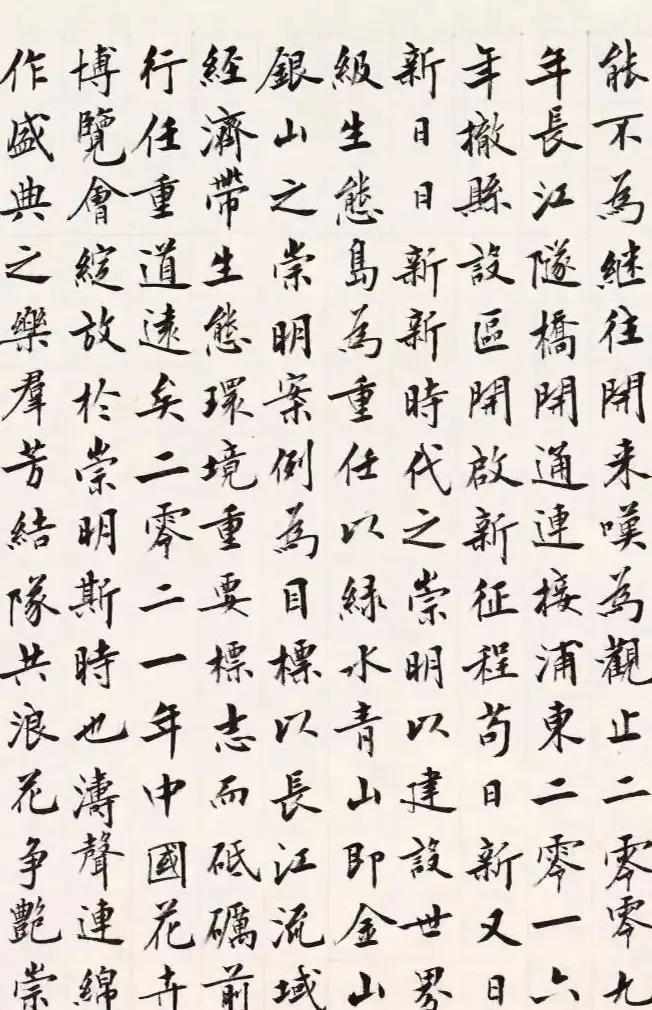 能不為継往開来嘆為觀止二零零九
年長江隧橋開通連接浦東二零一六
年撤縣設區開啟新征程苟日新又日
新日日新新時代之崇明以建設世界
級生態島為重任以緑水青山即金山
銀山之崇明案例為目標以長江流域
經濟帶生態環境重要標志而砥礪前
行任重道遠矣二零二一年中國花卉
博覽會綻放於崇明斯時也濤聲連綿
作盛典之樂羣芳結隊共浪花争艷崇